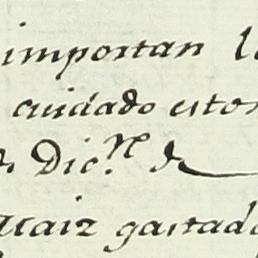 importan l
cuidado estos
Dic.n de
maiz gastado